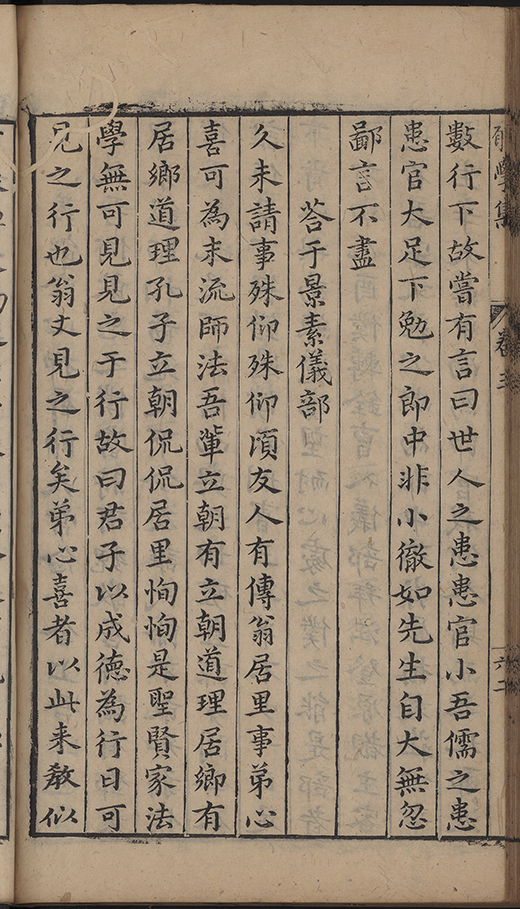 學集
卷三
六二
數行下故嘗有言曰世人之患患官小吾儒之患
患官大足下勉之郎中非小徹如先生自大無忽
鄙言不盡
答于景素儀部
久未請事殊仰殊仰頃友人有傳翁居里事弟心
喜可為末流師法吾輩立朝有立朝道理居鄉有
居鄉道理孔子立朝侃侃居里恂恂是聖賢家法
學無可見見之于行故曰君子以成德為行日可
見之行也翁丈見之行矣弟心喜者以此来教似